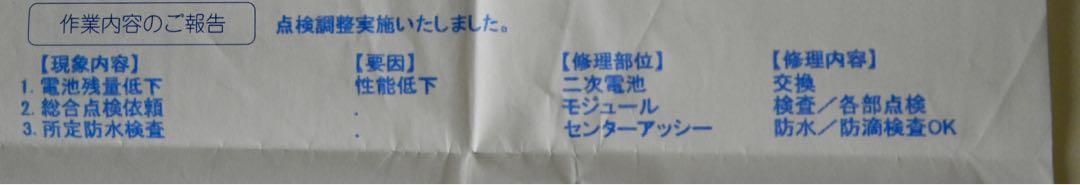 作業内容のご報告 点検調整実施いたしました。
【現象内容】 【要因】 【修理部位】 【修理内容】
1. 電池残量低下 性能低下 二次電池 交換
2. 総合点検依頼 . モジュール 検査／各部点検
3. 所定防水検査 . センターアッシー 防水／防滴検査OK